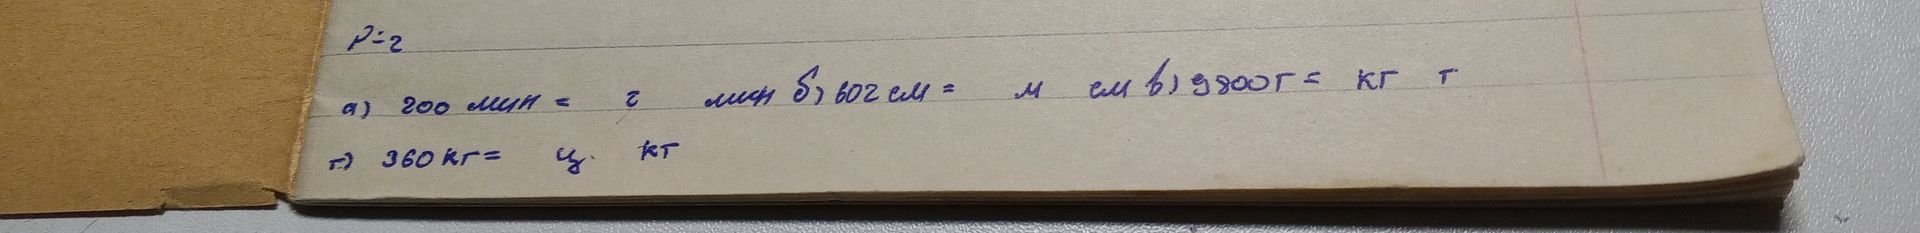 P=2
а) 200 мин = г мин б) 602 см = м см в) 9800 г = кг г
г) 360 кг = ц. кг